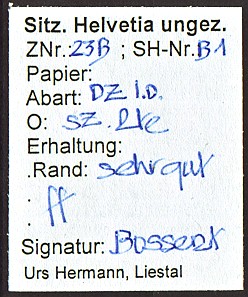 Sitz. Helvetia ungez.
ZNr.: 23B ; SH-Nr. B1
Papier:
Abart: DZ i.D.
O: SZ. Rte
Erhaltung:
.Rand: sehr gut
: ff
Signatur: Bossert
Urs Hermann, Liestal